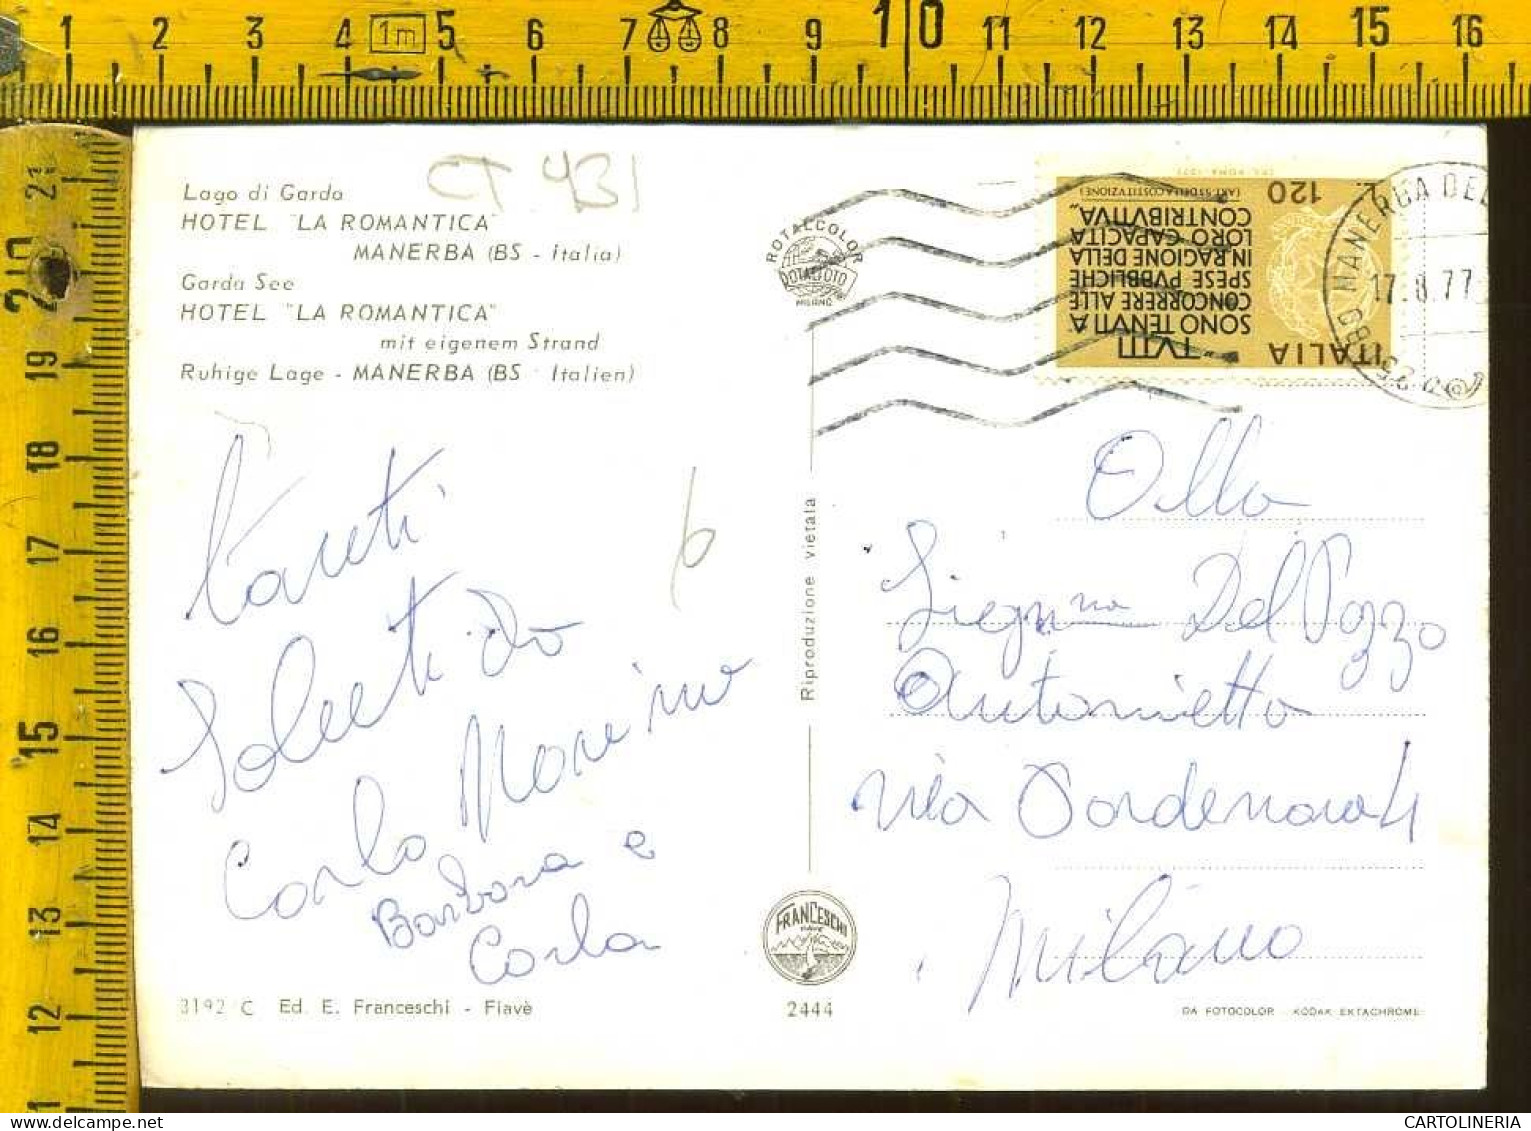 1 2 3 4 1m 5 6 7 8 9 10 11 12 13 14 15 16
21
20
19
18
17
16
15
14
13
12
11
CT 431
Lago di Garda
HOTEL "LA ROMANTICA"
MANERBA (BS - Italia)
Garda See
HOTEL "LA ROMANTICA"
mit eigenem Strand
Ruhige Lage - MANERBA (BS - Italien)
Tanti
Saluti da
Carlo
Barbara e
Carla
6
3192 C Ed. E. Franceschi - Fiavè
ROTALCOLOR
ROTALFOTO
MILANO
Riproduzione vietata
FRANCESCHI
FIAVÈ
2444
ITALIA
L. 120
"TUTTI
SONO TENUTI A
CONCORRERE ALLE
SPESE PUBBLICHE
IN RAGIONE DELLA
LORO CAPACITÀ
CONTRIBUTIVA"
(ART. 53 DELLA COSTITUZIONE)
MANERBA DEL
17.8.77
Alla
Sig.na Del Pozzo
Antonietta
via Pordenone 4
Milano
DA FOTOCOLOR KODAK EKTACHROME
CARTOLINERIA